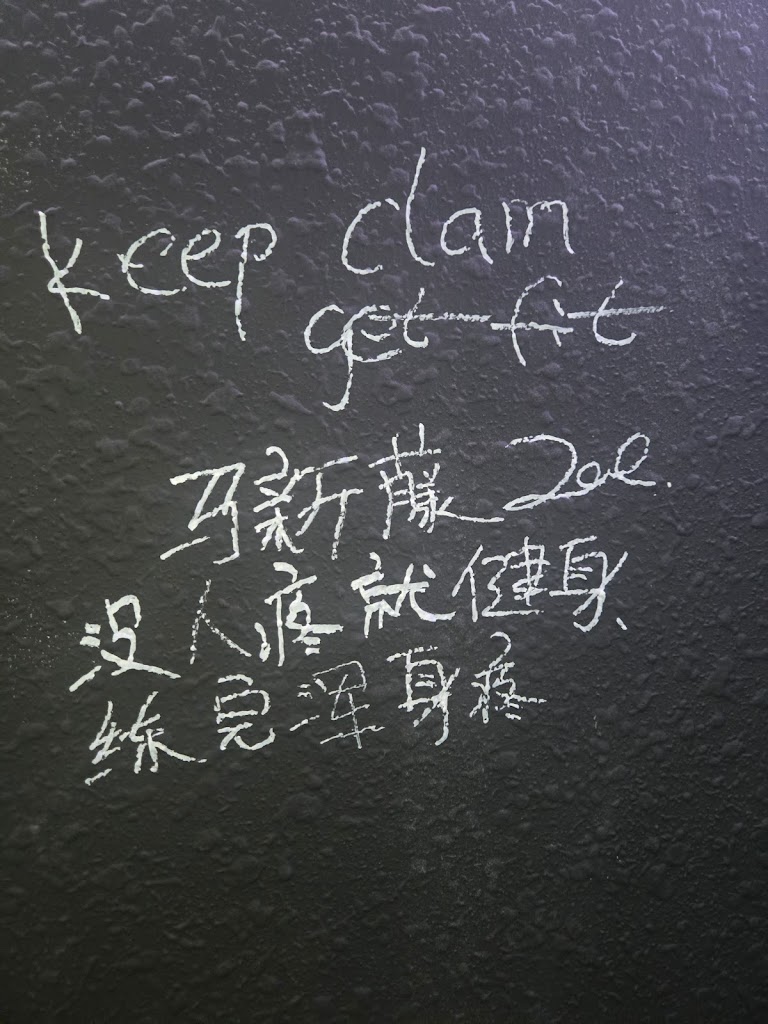 keep clam
get fit
马新藤 Zoe.
没人疼就健身、
练完浑身疼